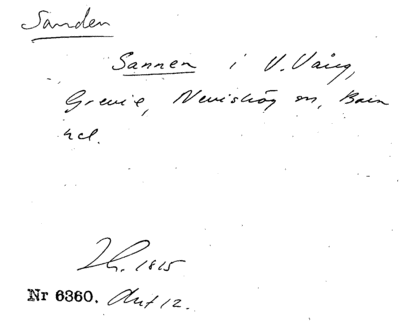 Sanden
Sannen i V. Vång,
Grevie, Nevishög sn, Bara
hd.
1815
Nr 6360. Akt 12.